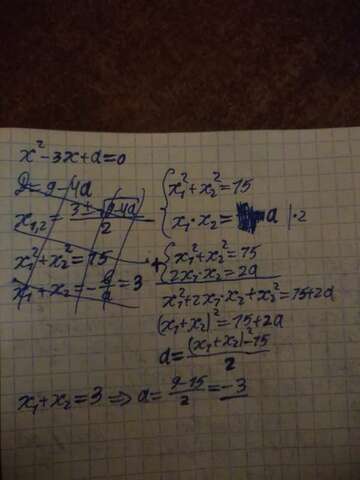 x² - 3x + a = 0
D = 9 - 4a
x₁,₂ = (3 ± √(9-4a)) / 2
x₁² + x₂² = 15
x₁ + x₂ = -b/a = 3
{ x₁² + x₂² = 15
x₁ · x₂ = a | · 2
+ { x₁² + x₂² = 15
2x₁ · x₂ = 2a
x₁² + 2x₁ · x₂ + x₂² = 15 + 2a
(x₁ + x₂)² = 15 + 2a
a = ((x₁ + x₂)² - 15) / 2
x₁ + x₂ = 3 ⟹ a = (9 - 15) / 2 = -3